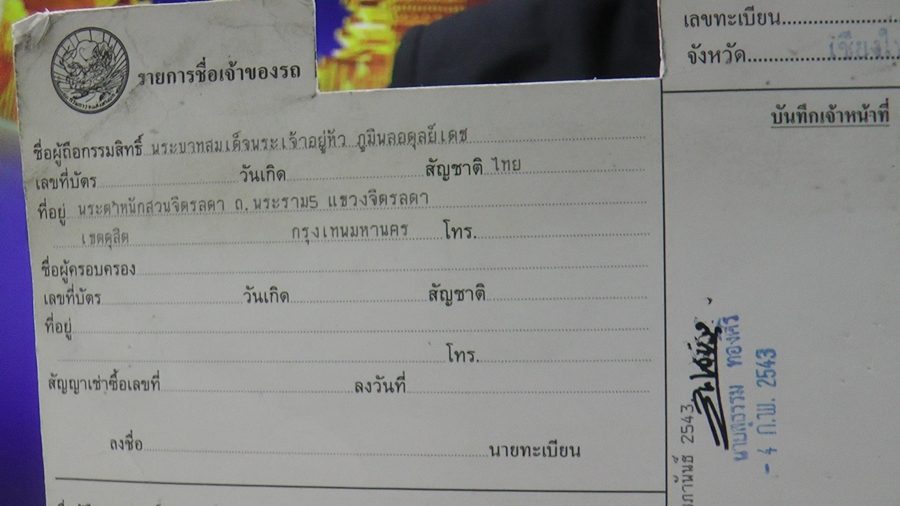 รายการชื่อเจ้าของรถ
ชื่อผู้ถือกรรมสิทธิ์ พระบาทสมเด็จพระเจ้าอยู่หัว ภูมิพลอดุลย์เดช
เลขที่บัตร วันเกิด สัญชาติ ไทย
ที่อยู่ พระตำหนักสวนจิตรลดา ถ.พระราม5 แขวงจิตรลดา
เขตดุสิต กรุงเทพมหานคร โทร.
ชื่อผู้ครอบครอง
เลขที่บัตร วันเกิด สัญชาติ
ที่อยู่
โทร.
สัญญาเช่าซื้อเลขที่ ลงวันที่
ลงชื่อ นายทะเบียน
เลขทะเบียน
จังหวัด
บันทึกเจ้าหน้าที่
2543
นายสุธรรม ทองศิริ
- 4 ก.พ. 2543